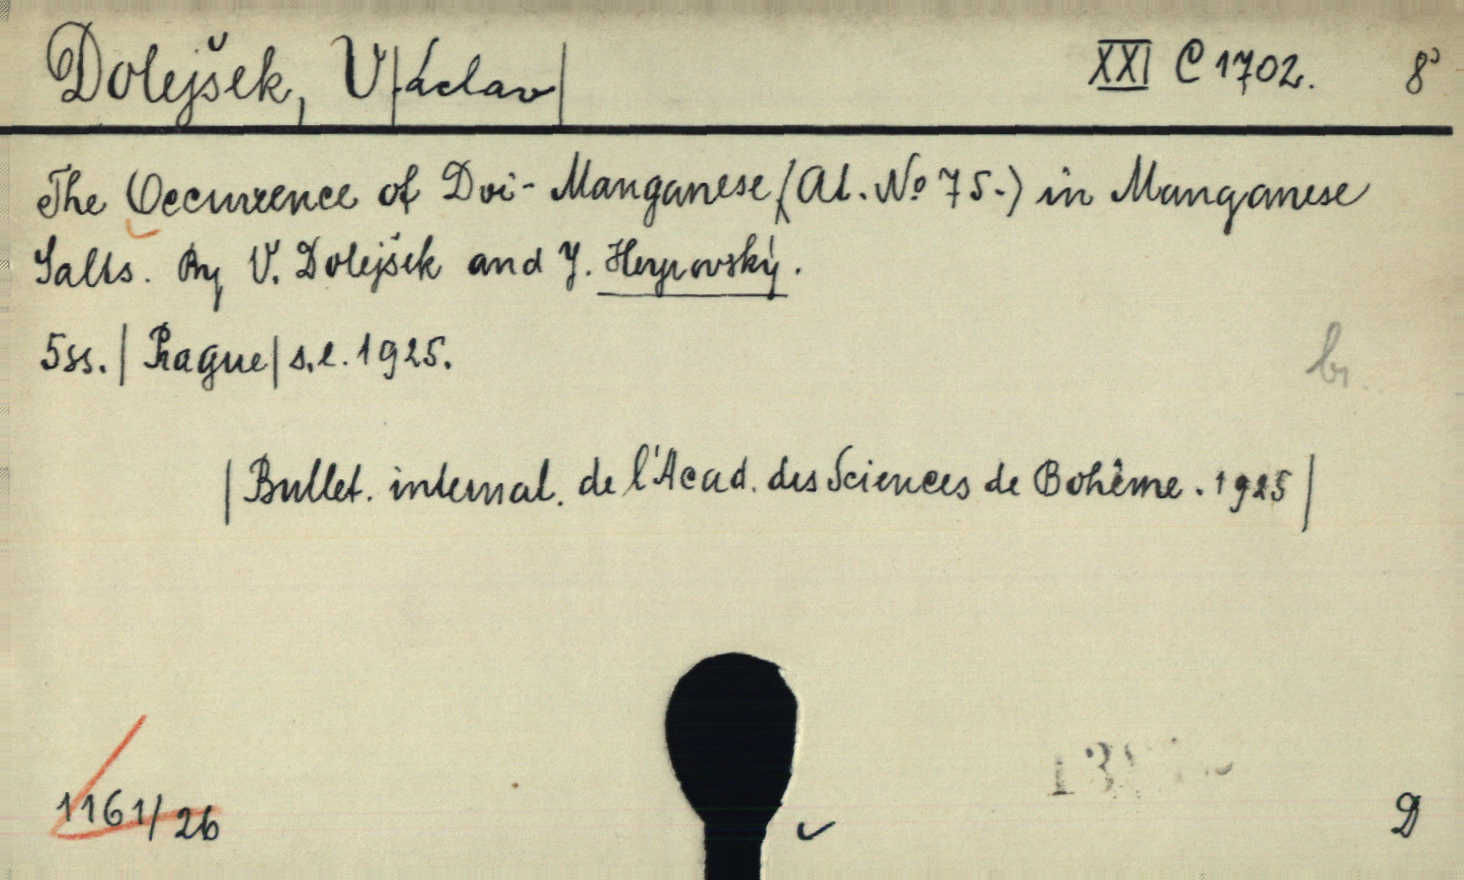 Dolejšek, V|áclav| XXI C 1702. 8°
The Occurrence of Dvi-Manganese (At. No 75.) in Manganese
Salts. By V. Dolejšek and J. Heyrovský.
5 ss. | Prague | s.l. 1925.
br.
| Bullet. internat. de l'Acad. des Sciences de Bohême. 1925 |
1161/26
D